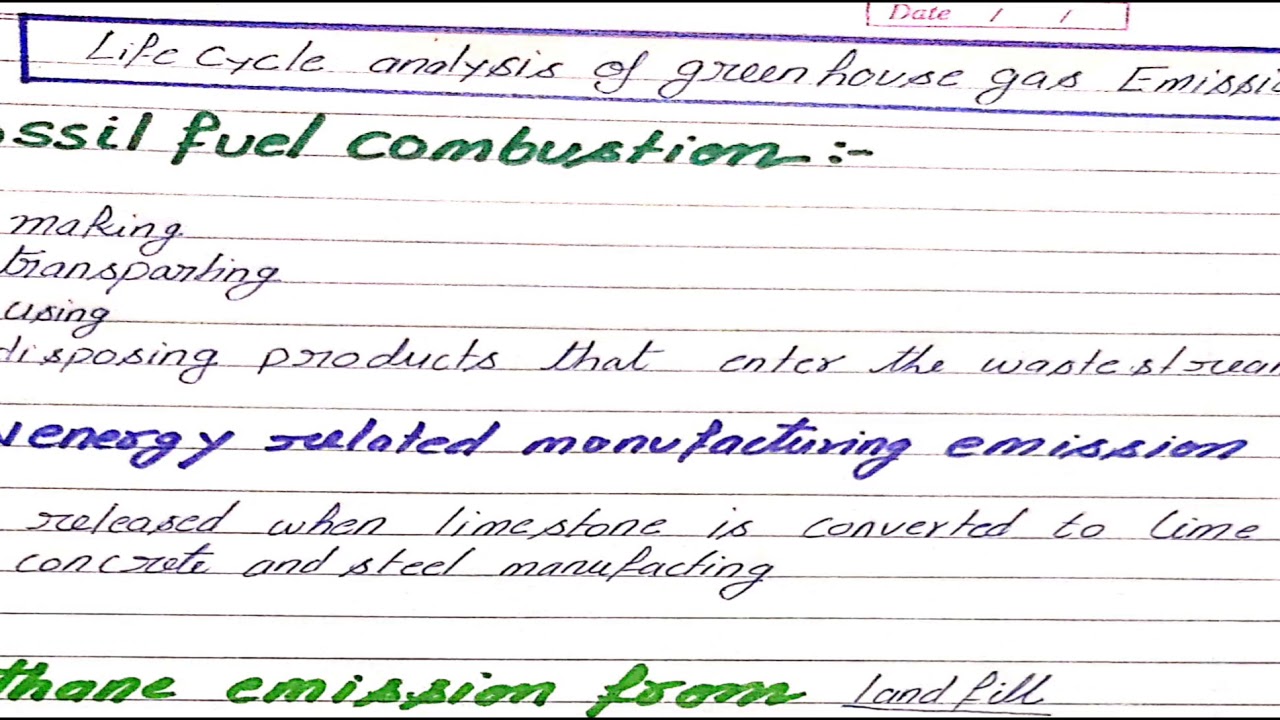 Date / /
Life Cycle analysis of greenhouse gas Emissi
ossil fuel combustion :-
making
transparting
using
disposing products that enter the waste strea
energy related manufacturing emission
released when limestone is converted to lime
concrete and steel manufacting
thane emission from landfill